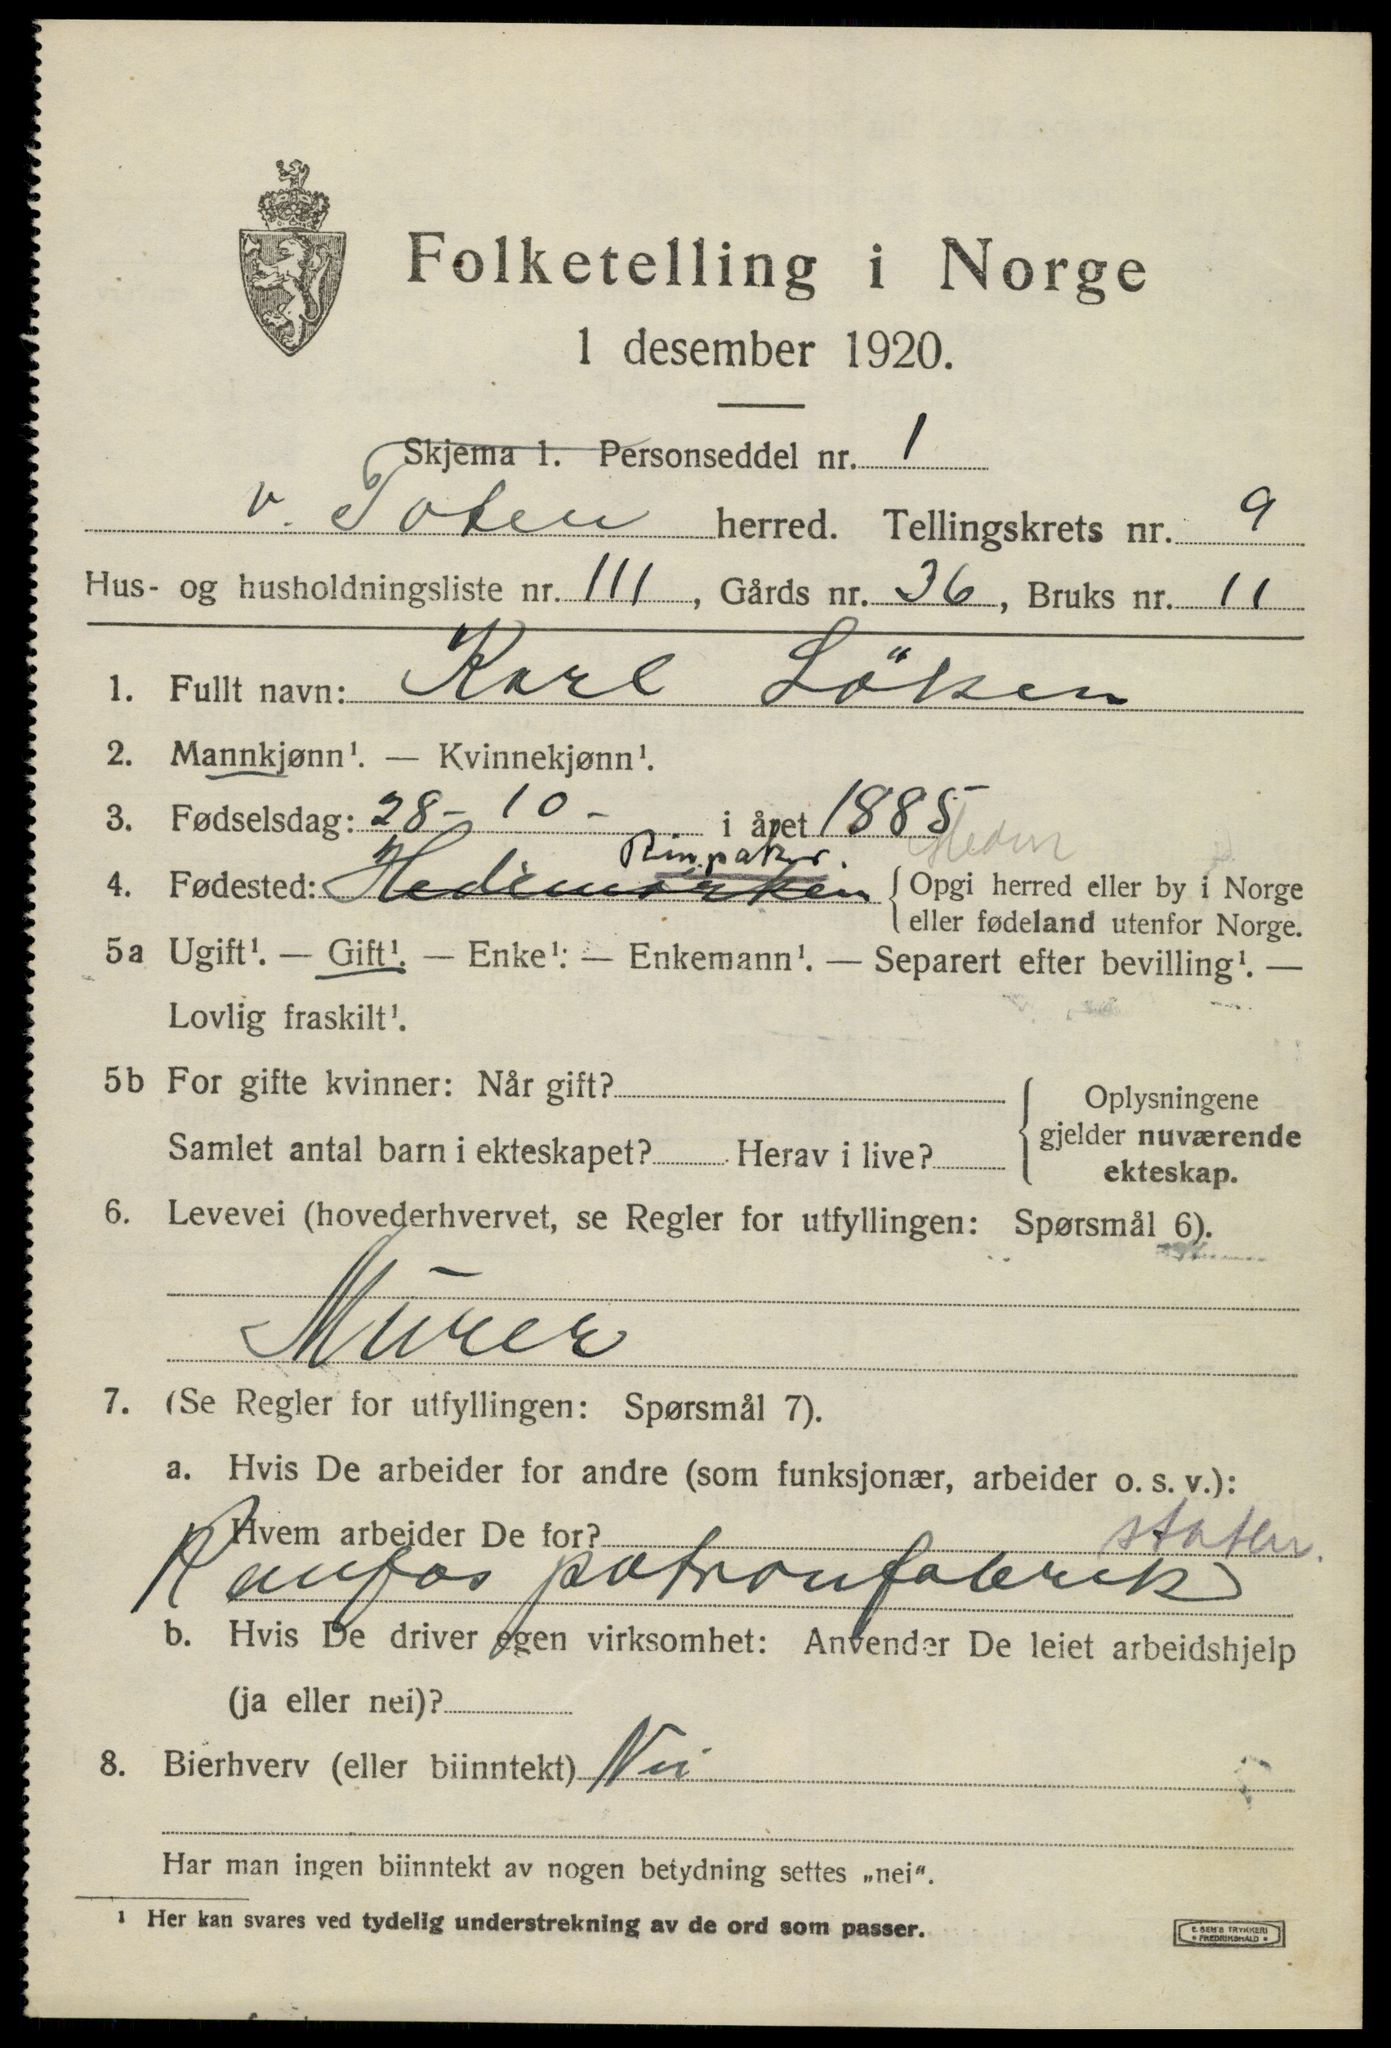 Folketelling i Norge
1 desember 1920.
Skjema 1. Personseddel nr. 1
v. Toten herred. Tellingskrets nr. 9
Hus- og husholdningsliste nr. 111, Gårds nr. 36, Bruks nr. 11
1. Fullt navn: Karl Löken
2. Mannkjønn¹. — Kvinnekjønn¹.
3. Fødselsdag: 28- 10- i året 1885
Ringsaker. Hedm
4. Fødested: Hedemarken { Opgi herred eller by i Norge
eller fødeland utenfor Norge.
5a Ugift¹. — Gift¹. — Enke¹: — Enkemann¹. — Separert efter bevilling¹. —
Lovlig fraskilt¹.
5b For gifte kvinner: Når gift?
Samlet antal barn i ekteskapet? Herav i live?
Oplysningene
gjelder nuværende
ekteskap.
6. Levevei (hovederhvervet, se Regler for utfyllingen: Spørsmål 6).
Murer
7. (Se Regler for utfyllingen: Spørsmål 7).
a. Hvis De arbeider for andre (som funksjonær, arbeider o. s. v.):
Hvem arbeider De for? staten.
Raufos patronfabrik
b. Hvis De driver egen virksomhet: Anvender De leiet arbeidshjelp
(ja eller nei)?
8. Bierhverv (eller biinntekt) Nei
Har man ingen biinntekt av nogen betydning settes „nei“.
¹ Her kan svares ved tydelig understrekning av de ord som passer.
E. SEM'S TRYKKERI
* FREDRIKSHALD *